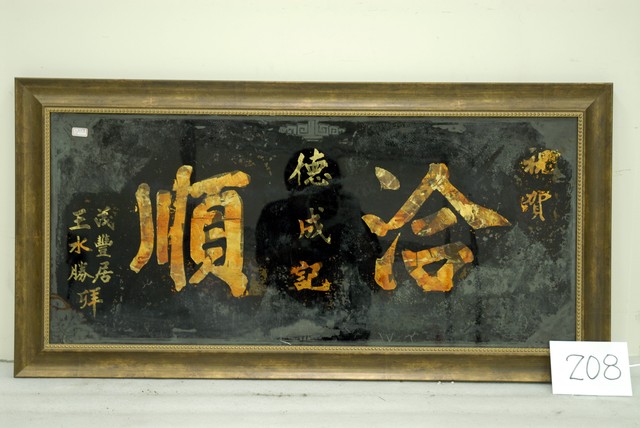 祝賀
洽順
德成記
茂豐居
王水勝拜
208